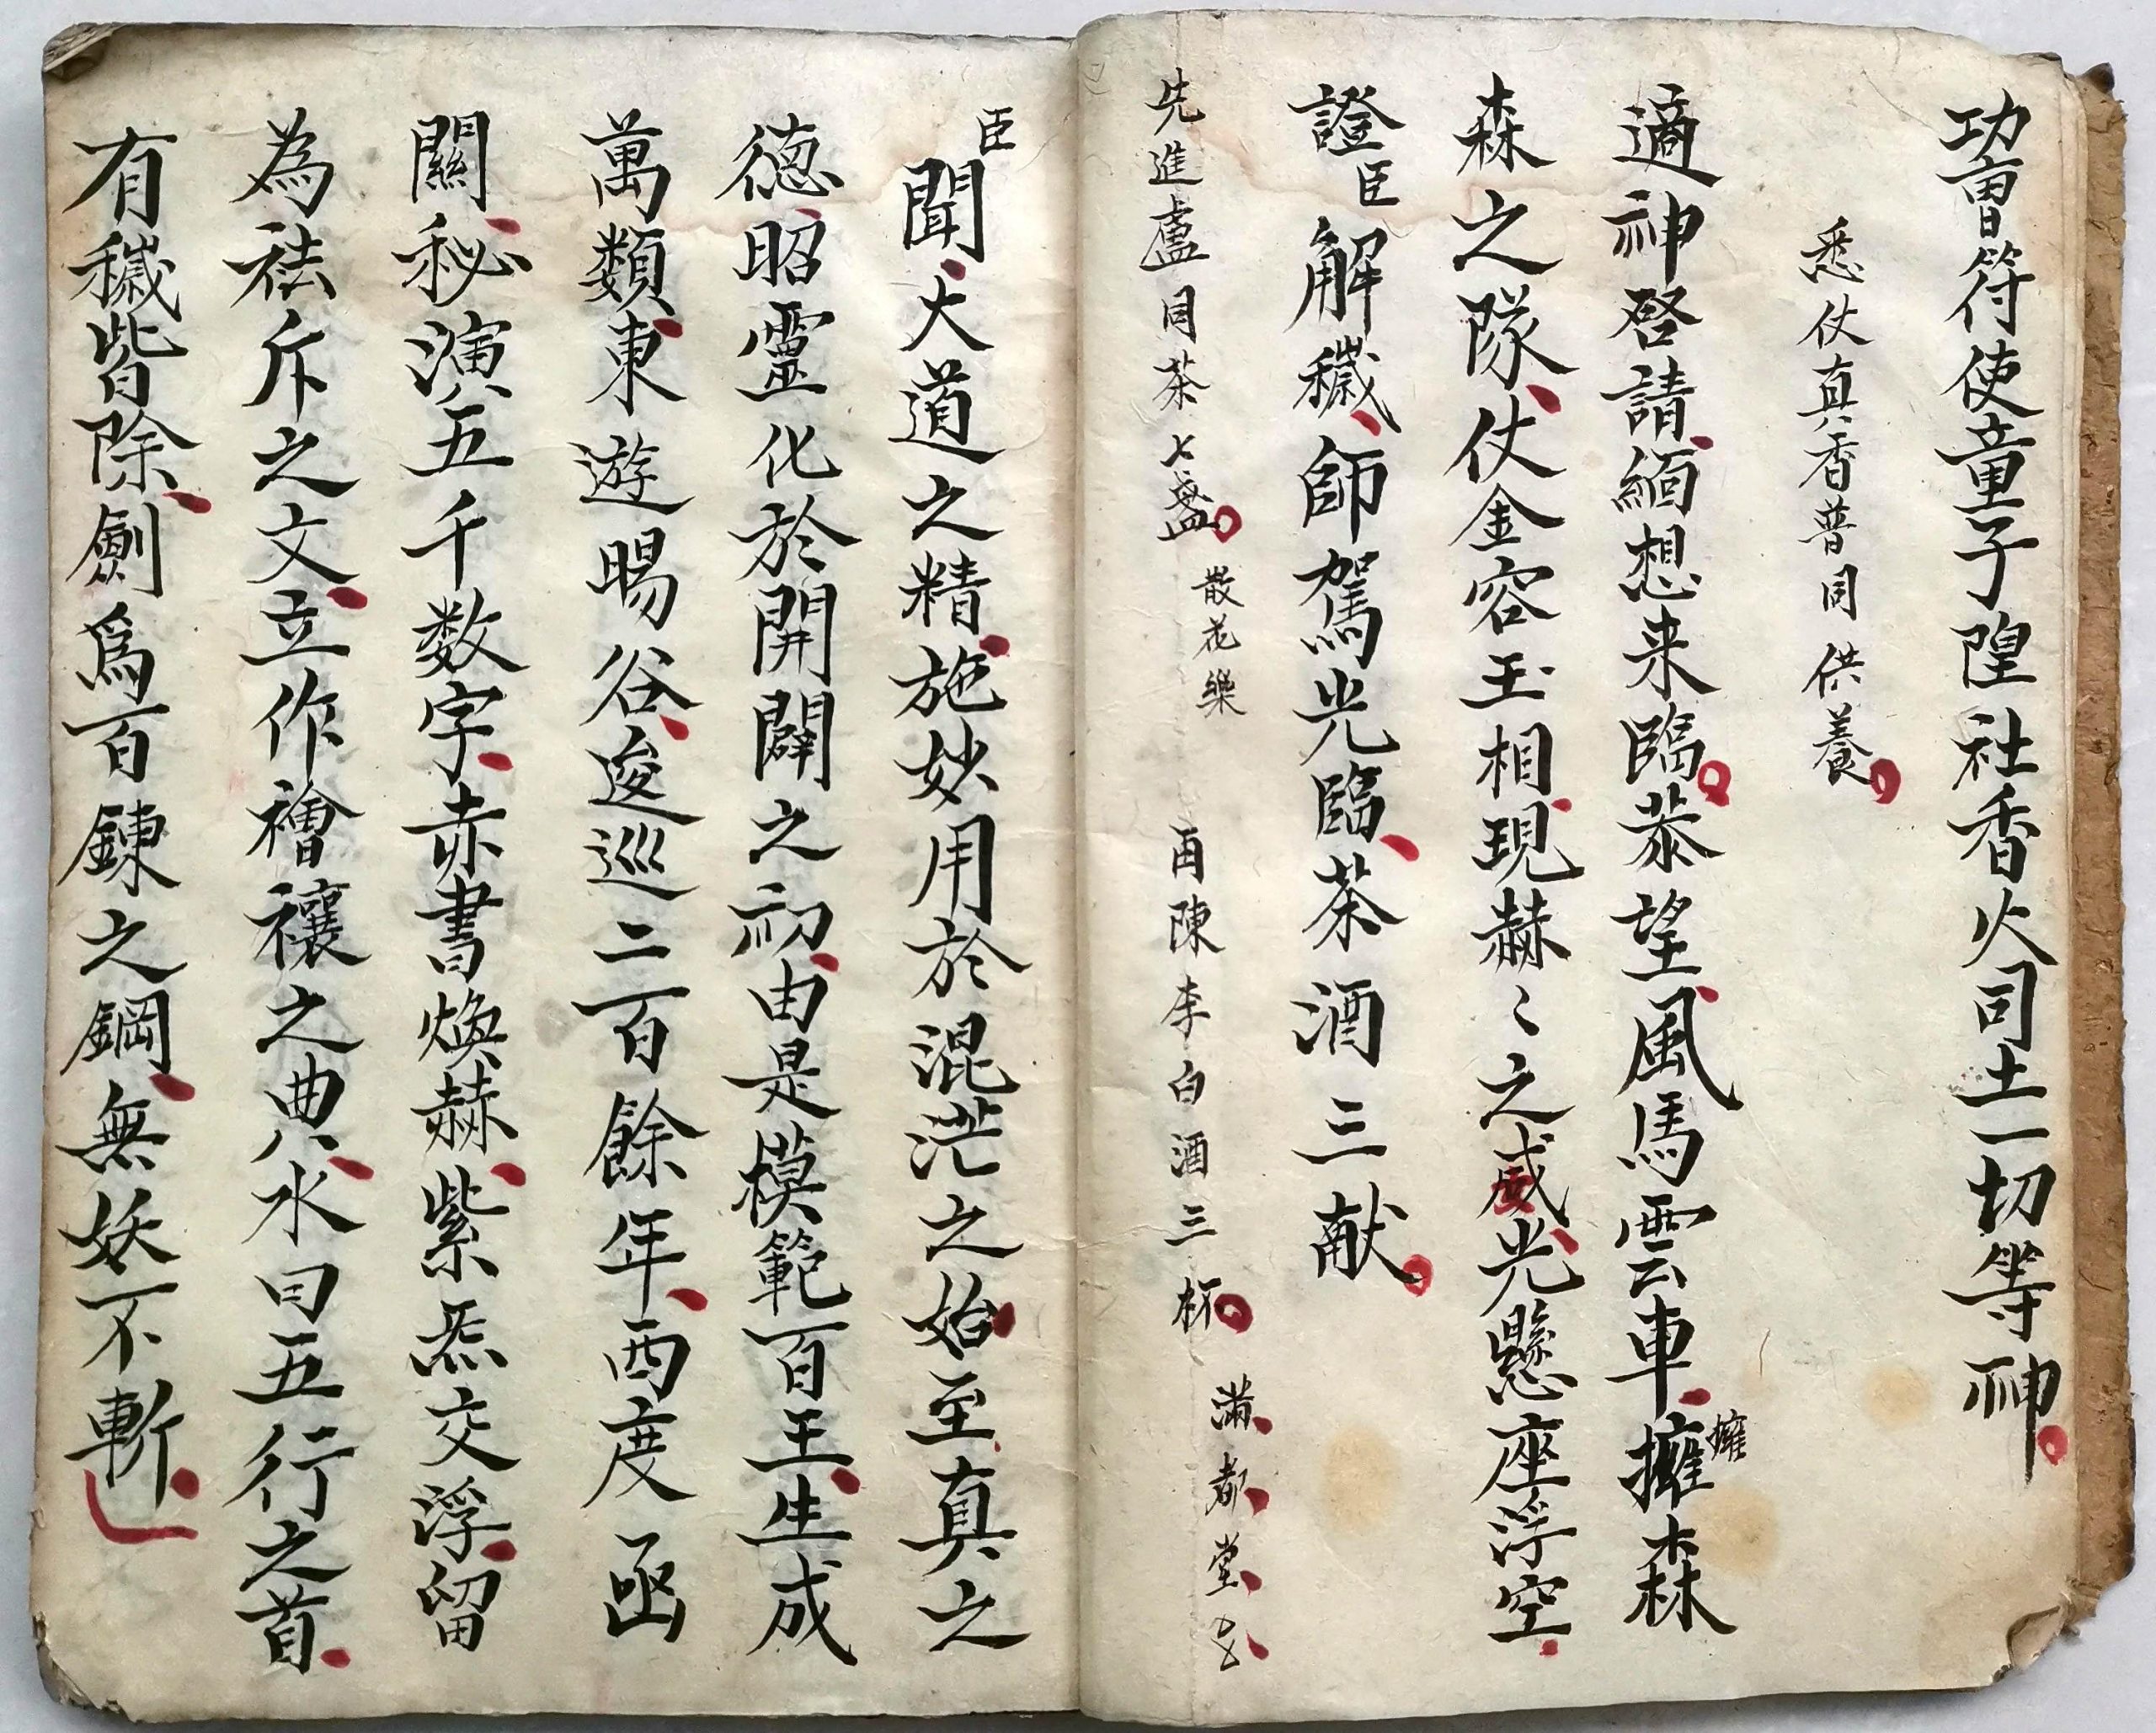 功曹符使童子隍社香火司土一切等神
悉仗真香普同供養
適神啓請緬想来臨恭望風馬雲車擁森
擁
森之隊仗金容玉相現赫〻之威光懸座浮空
證臣解穢師駕光臨茶酒三献
先進盧同茶七盞 散花樂 再陳李白酒三杯 滿都堂
臣聞大道之精施妙用於混茫之始至真之
德昭靈化於開闢之初由是模範百王生成
萬類東遊暘谷逡巡二百餘年西度函
關秘演五千数字赤書煥赫紫炁交浮留
為祛斥之文立作禬禳之典水曰五行之首
有穢皆除劍為百鍊之鋼無妖不斬